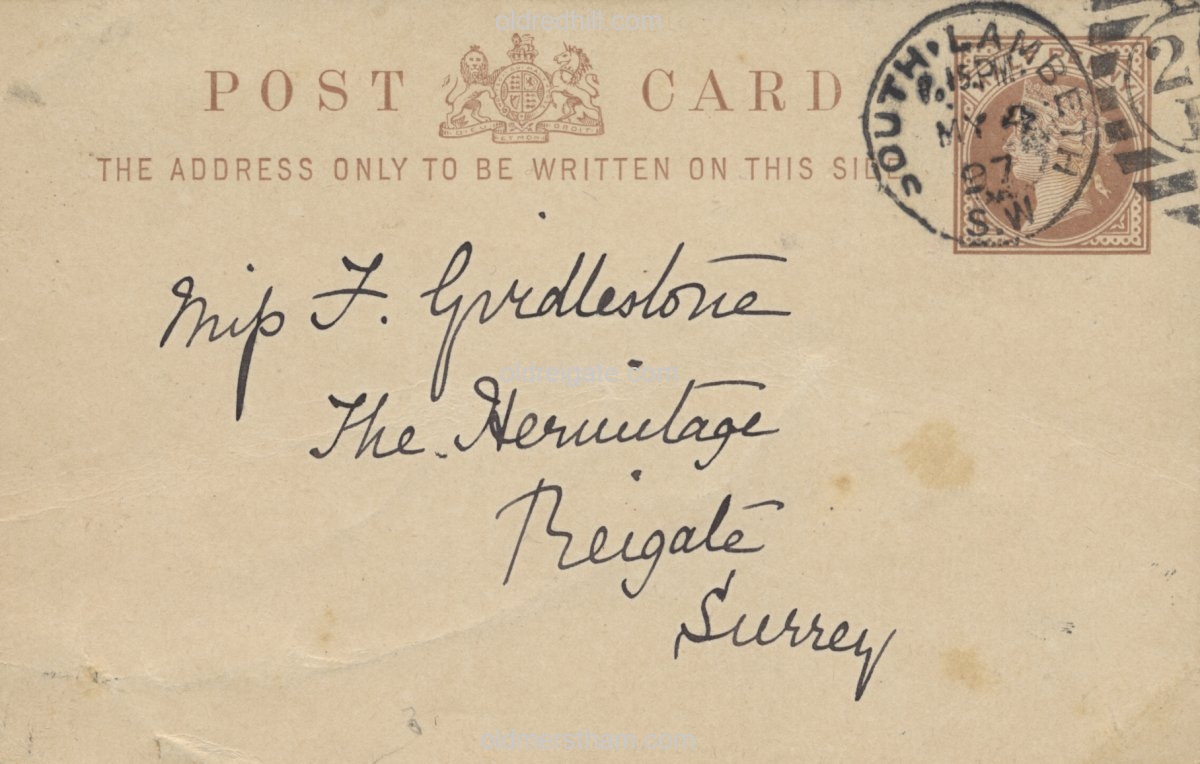 oldredhill.com
POST CARD
THE ADDRESS ONLY TO BE WRITTEN ON THIS SIDE
SOUTH·LAMBETH
8.15PM
MY 4
97
S.W
2
Miss F. Girdlestone
oldreigate.com
The Hermitage
Reigate
Surrey
oldmerstham.com